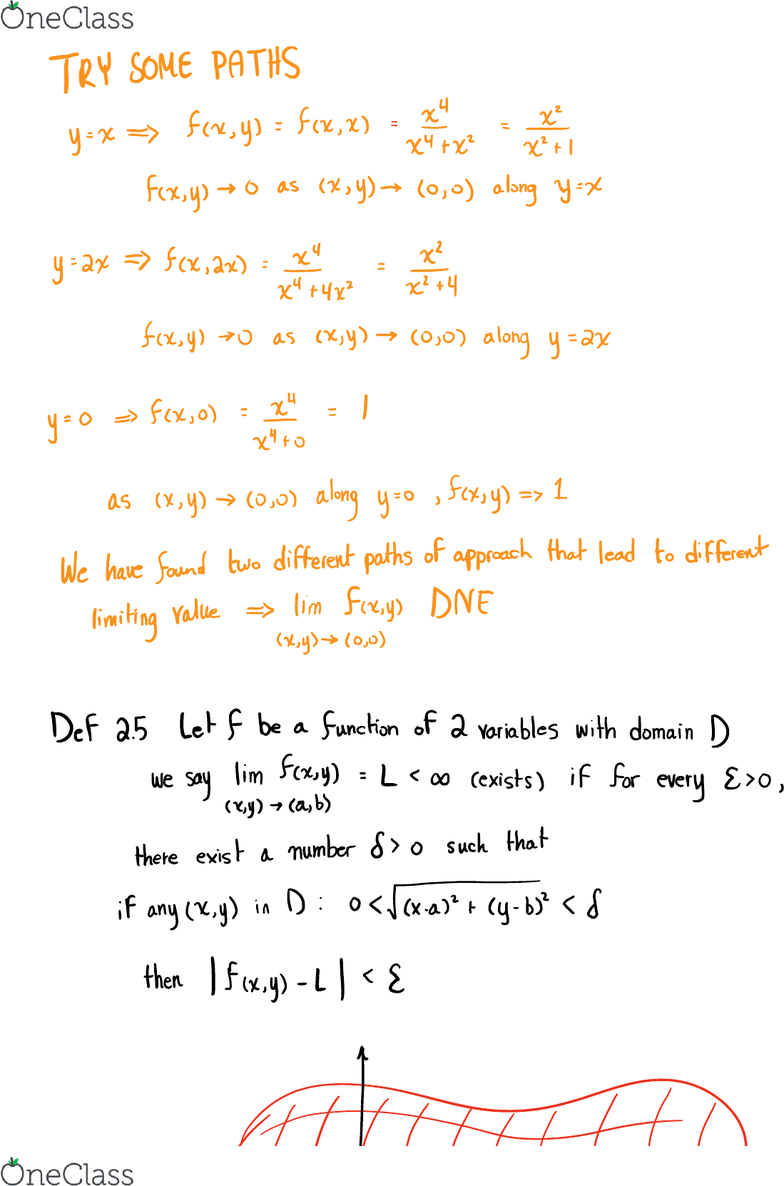 OneClass
TRY SOME PATHS
y=x ⟹ f(x,y) = f(x,x) = x⁴/(x⁴+x²) = x²/(x²+1)
f(x,y) → 0 as (x,y) → (0,0) along y=x
y=2x ⟹ f(x,2x) = x⁴/(x⁴+4x²) = x²/(x²+4)
f(x,y) → 0 as (x,y) → (0,0) along y=2x
y=0 ⟹ f(x,0) = x⁴/(x⁴+0) = 1
as (x,y) → (0,0) along y=0, f(x,y) => 1
We have found two different paths of approach that lead to different
limiting value ⟹ lim f(x,y) DNE
(x,y)→(0,0)
Def 2.5 Let f be a function of 2 variables with domain D
we say lim f(x,y) = L < ∞ (exists) if for every ε>0,
(x,y)→(a,b)
there exist a number δ>0 such that
if any (x,y) in D: 0<√((x-a)²+(y-b)²) < δ
then |f(x,y) - L| < ε
OneClass